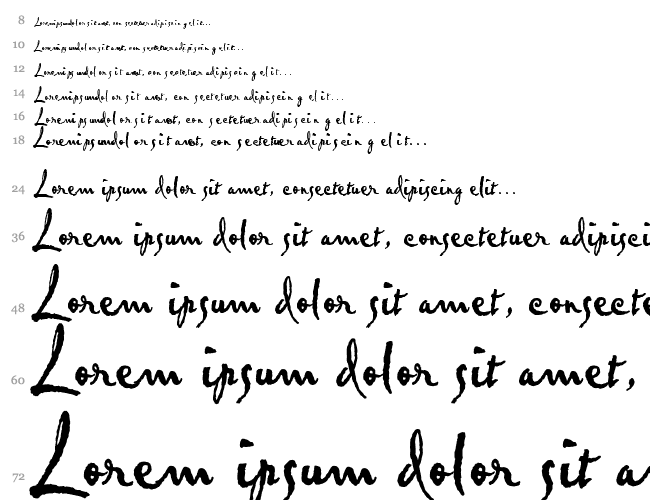 8 Lorem ipsum dolor sit amet, consectetuer adipiscing elit...
10 Lorem ipsum dolor sit amet, consectetuer adipiscing elit...
12 Lorem ipsum dolor sit amet, consectetuer adipiscing elit...
14 Lorem ipsum dolor sit amet, consectetuer adipiscing elit...
16 Lorem ipsum dolor sit amet, consectetuer adipiscing elit...
18 Lorem ipsum dolor sit amet, consectetuer adipiscing elit...
24 Lorem ipsum dolor sit amet, consectetuer adipiscing elit...
36 Lorem ipsum dolor sit amet, consectetuer adipisci
48 Lorem ipsum dolor sit amet, consecte
60 Lorem ipsum dolor sit amet,
72 Lorem ipsum dolor sit a